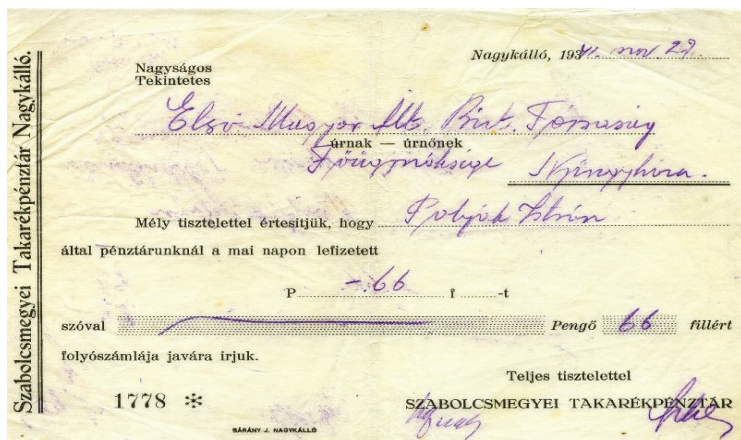 Szabolcsmegyei Takarékpénztár Nagykálló.
Nagykálló, 1941. nov. 29.
Nagyságos
Tekintetes
Első Magyar Ált. Bizt. Társaság
úrnak — úrnőnek
Főügynöksége Nyíregyháza.
Mély tisztelettel értesítjük, hogy István
által pénztárunknál a mai napon lefizetett
P -.66 f -t
szóval Pengő 66 fillért
folyószámlája javára irjuk.
Teljes tisztelettel
1778 * SZABOLCSMEGYEI TAKARÉKPÉNZTÁR
BÁRÁNY J. NAGYKÁLLÓ